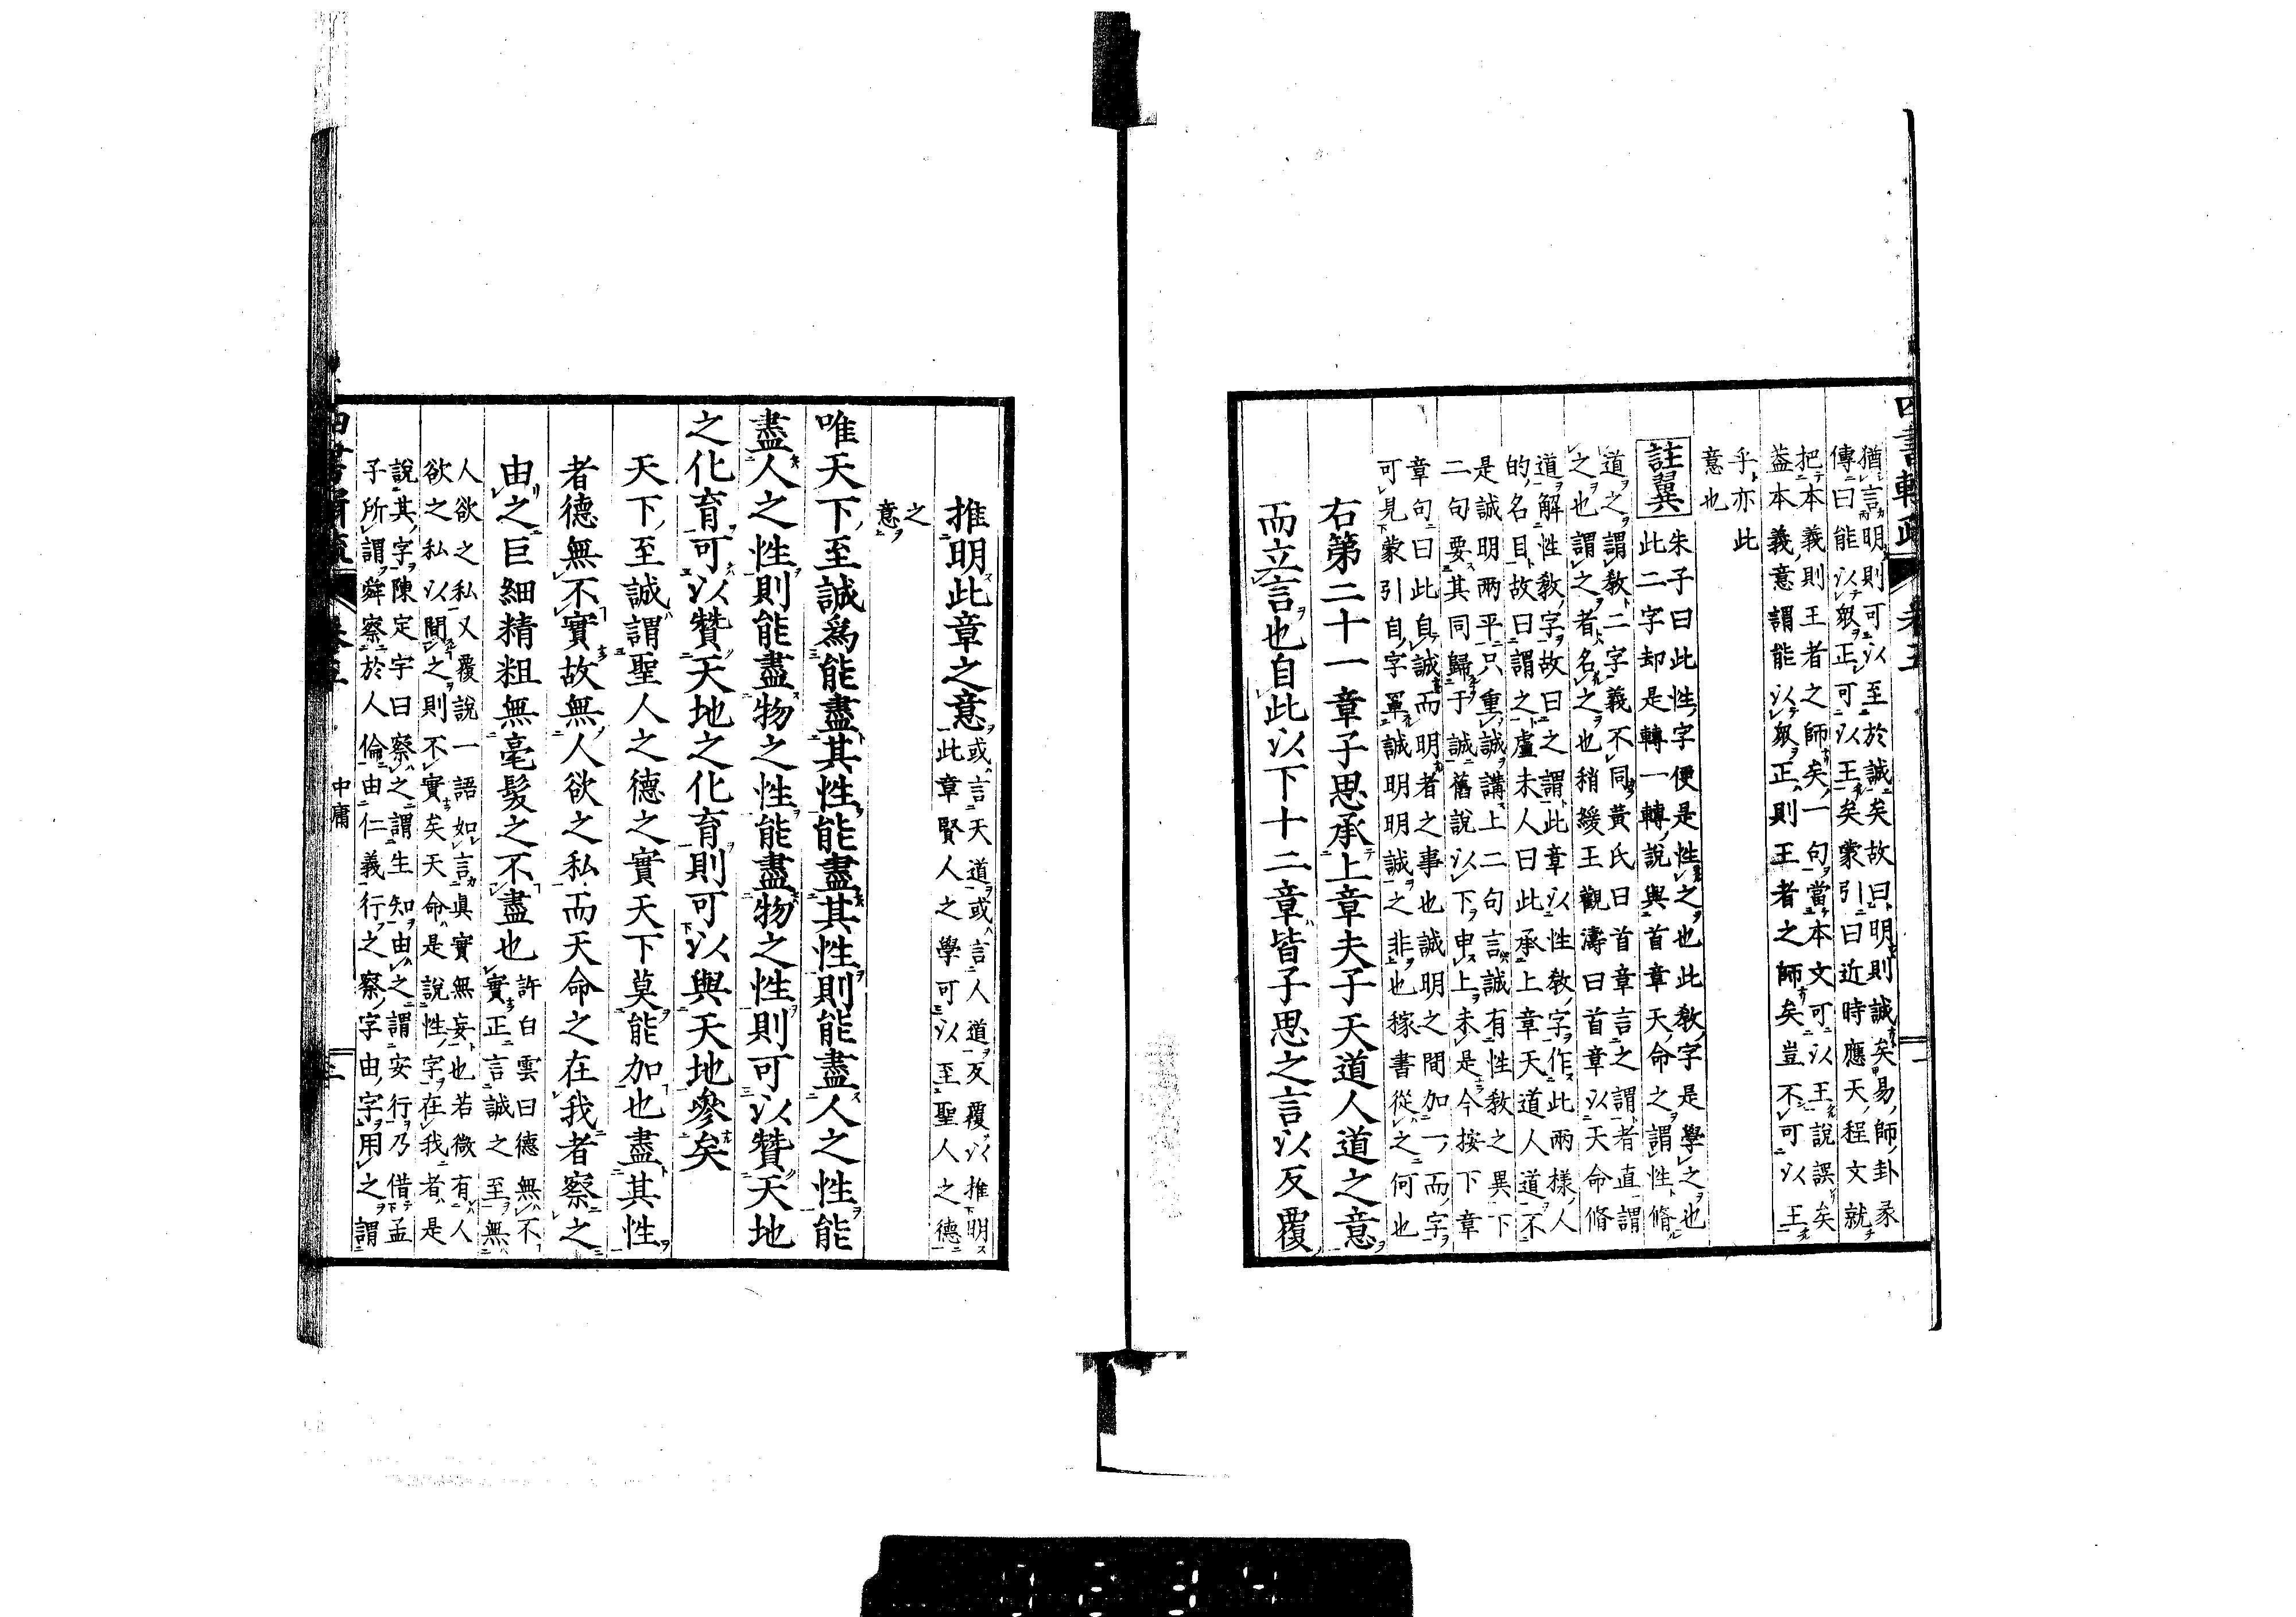 猶言明則可以至於誠矣故曰明則誠矣易師卦彖
傳曰能以衆正可以王矣蒙引曰近時應天程文就
把本義則王者之師矣一句當本文可以王說誤矣
葢本義意謂能以衆正則王者之師矣豈不可以王
乎亦此
意也
註翼
朱子曰此性字便是性之也此教字是學之也
此二字却是轉一轉說與首章天命之謂性脩
道之謂教二字義不同黃氏曰首章言之謂者直謂
之也謂之者名之也稍緩王觀濤曰首章以天命脩
道解性教字故曰之謂此章以性教字作此兩樣人
的名目故曰謂之盧未人曰此承上章天道人道不
是誠明兩平只重誠講上二句言誠有性教之異下
二句要其同歸于誠舊說以下申上未是今按下章
章句曰此自誠而明者之事也誠明之間加一而字
可見蒙引自字單誠明明誠之非也稼書從之何也
右第二十一章子思承上章夫子天道人道之意
而立言也自此以下十二章皆子思之言以反覆
推明此章之意
或言天道或言人道反覆以推明
此章賢人之學可以至聖人之德
之
意
唯天下至誠爲能盡其性能盡其性則能盡人之性能
盡人之性則能盡物之性能盡物之性則可以贊天地
之化育可以贊天地之化育則可以與天地參矣
天下至誠謂聖人之德之實天下莫能加也盡其性
者德無不實故無人欲之私而天命之在我者察之
由之巨細精粗無毫髮之不盡也
許白雲曰德無不
實正言誠之至無
人欲之私又覆說一語如言眞實無妄也若微有人
欲之私以間之則不實矣天命是說性字在我者是
說其字陳定宇曰察之謂生知由之謂安行乃借孟
子所謂舜察於人倫由仁義行之察字由字用之謂
中庸